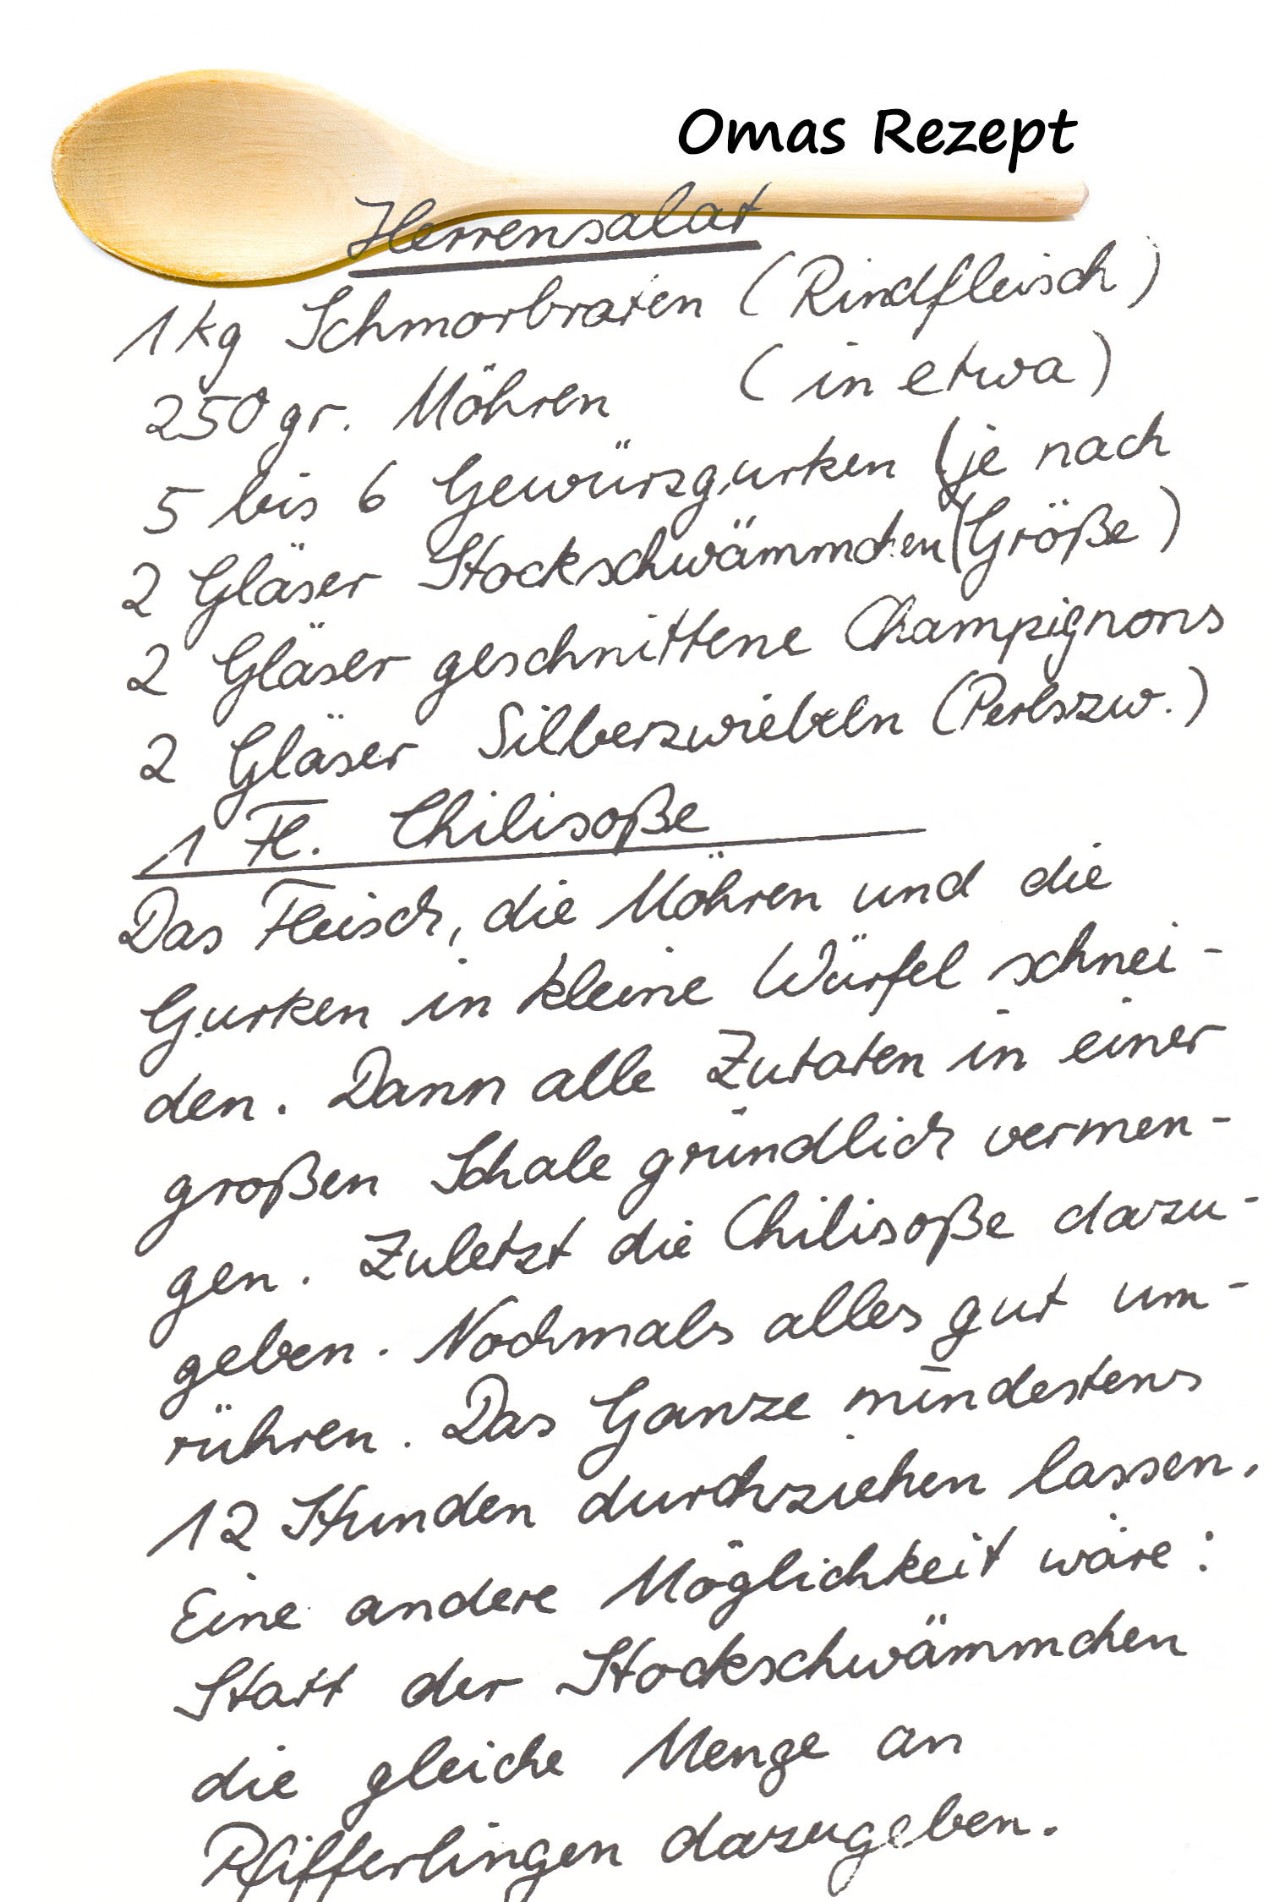 Omas Rezept
Herrensalat
1 kg Schmorbraten (Rindfleisch)
250 gr. Möhren (in etwa)
5 bis 6 Gewürzgurken (je nach
2 Gläser Stockschwämmchen (Größe)
2 Gläser geschnittene Champignons
2 Gläser Silberzwiebeln (Perlszw.)
1 Fl. Chilisoße
Das Fleisch, die Möhren und die
Gurken in kleine Würfel schnei-
den. Dann alle Zutaten in einer
großen Schale gründlich vermen-
gen. Zuletzt die Chilisoße dazu-
geben. Nochmals alles gut um-
rühren. Das Ganze mindestens
12 Stunden durchziehen lassen.
Eine andere Möglichkeit wäre:
Statt der Stockschwämmchen
die gleiche Menge an
Pfifferlingen dazugeben.